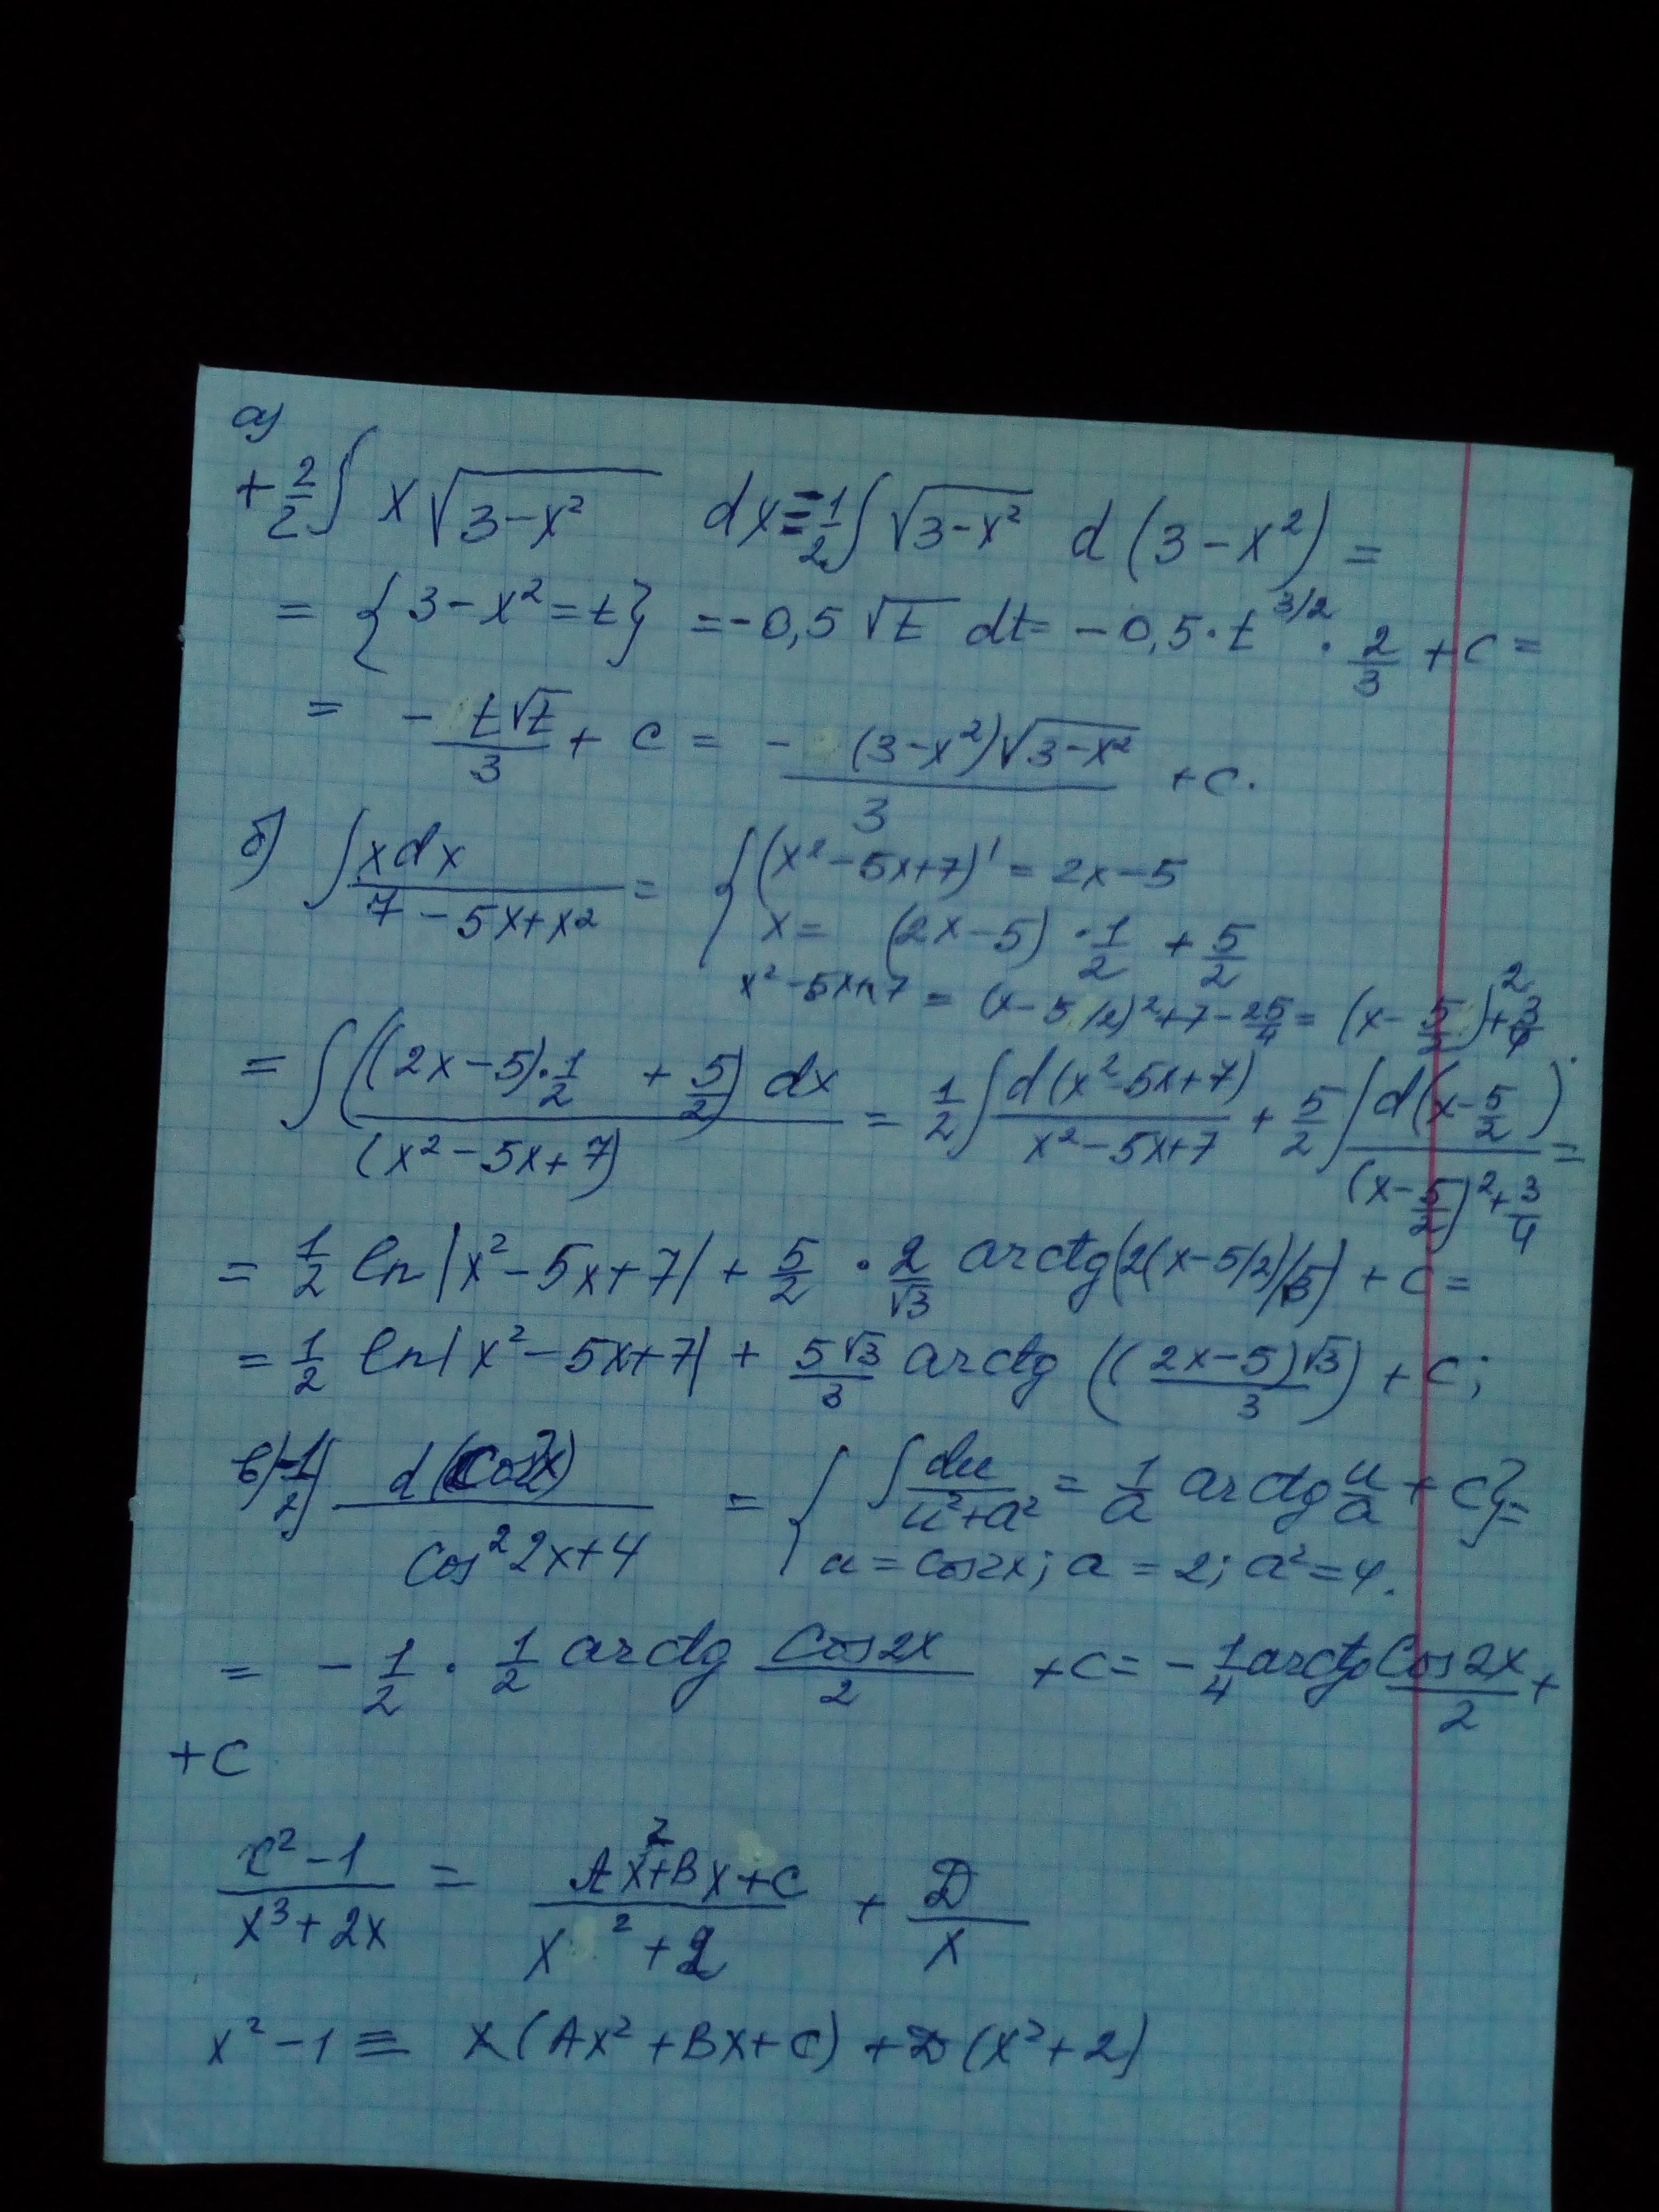 а)
+ 2/2 ∫ x √(3-x²) dx = -1/2 ∫ √(3-x²) d(3-x²) =
= {3-x² = t} = -0,5 √t dt = -0,5 · t^(3/2) · 2/3 + c =
= - t√t/3 + c = - (3-x²)√(3-x²)/3 + c.
б) ∫ xdx/(7-5x+x²) = { (x²-5x+7)' = 2x-5
x = (2x-5) · 1/2 + 5/2
x²-5x+7 = (x-5/2)²+7-25/4 = (x-5/2)²+3/4.
= ∫ ((2x-5)·1/2 + 5/2) dx/(x²-5x+7) = 1/2 ∫ d(x²-5x+7)/(x²-5x+7) + 5/2 ∫ d(x-5/2)/((x-5/2)²+3/4) =
= 1/2 ln|x²-5x+7| + 5/2 · 2/√3 arctg(2(x-5/2)/√3) + c =
= 1/2 ln|x²-5x+7| + 5√3/3 arctg ((2x-5)√3/3) + c;
в) -1/2 ∫ d(cos2x)/(cos²2x+4) = { ∫ du/(u²+a²) = 1/a arctg u/a + c} =
u = cos2x; a = 2; a² = 4.
= - 1/2 · 1/2 arctg cos2x/2 + c = - 1/4 arctg cos2x/2 +
+ c
x²-1/(x³+2x) = (Ax²+Bx+C)/(x²+2) + D/x
x²-1 ≡ x(Ax²+Bx+C) + D(x²+2)